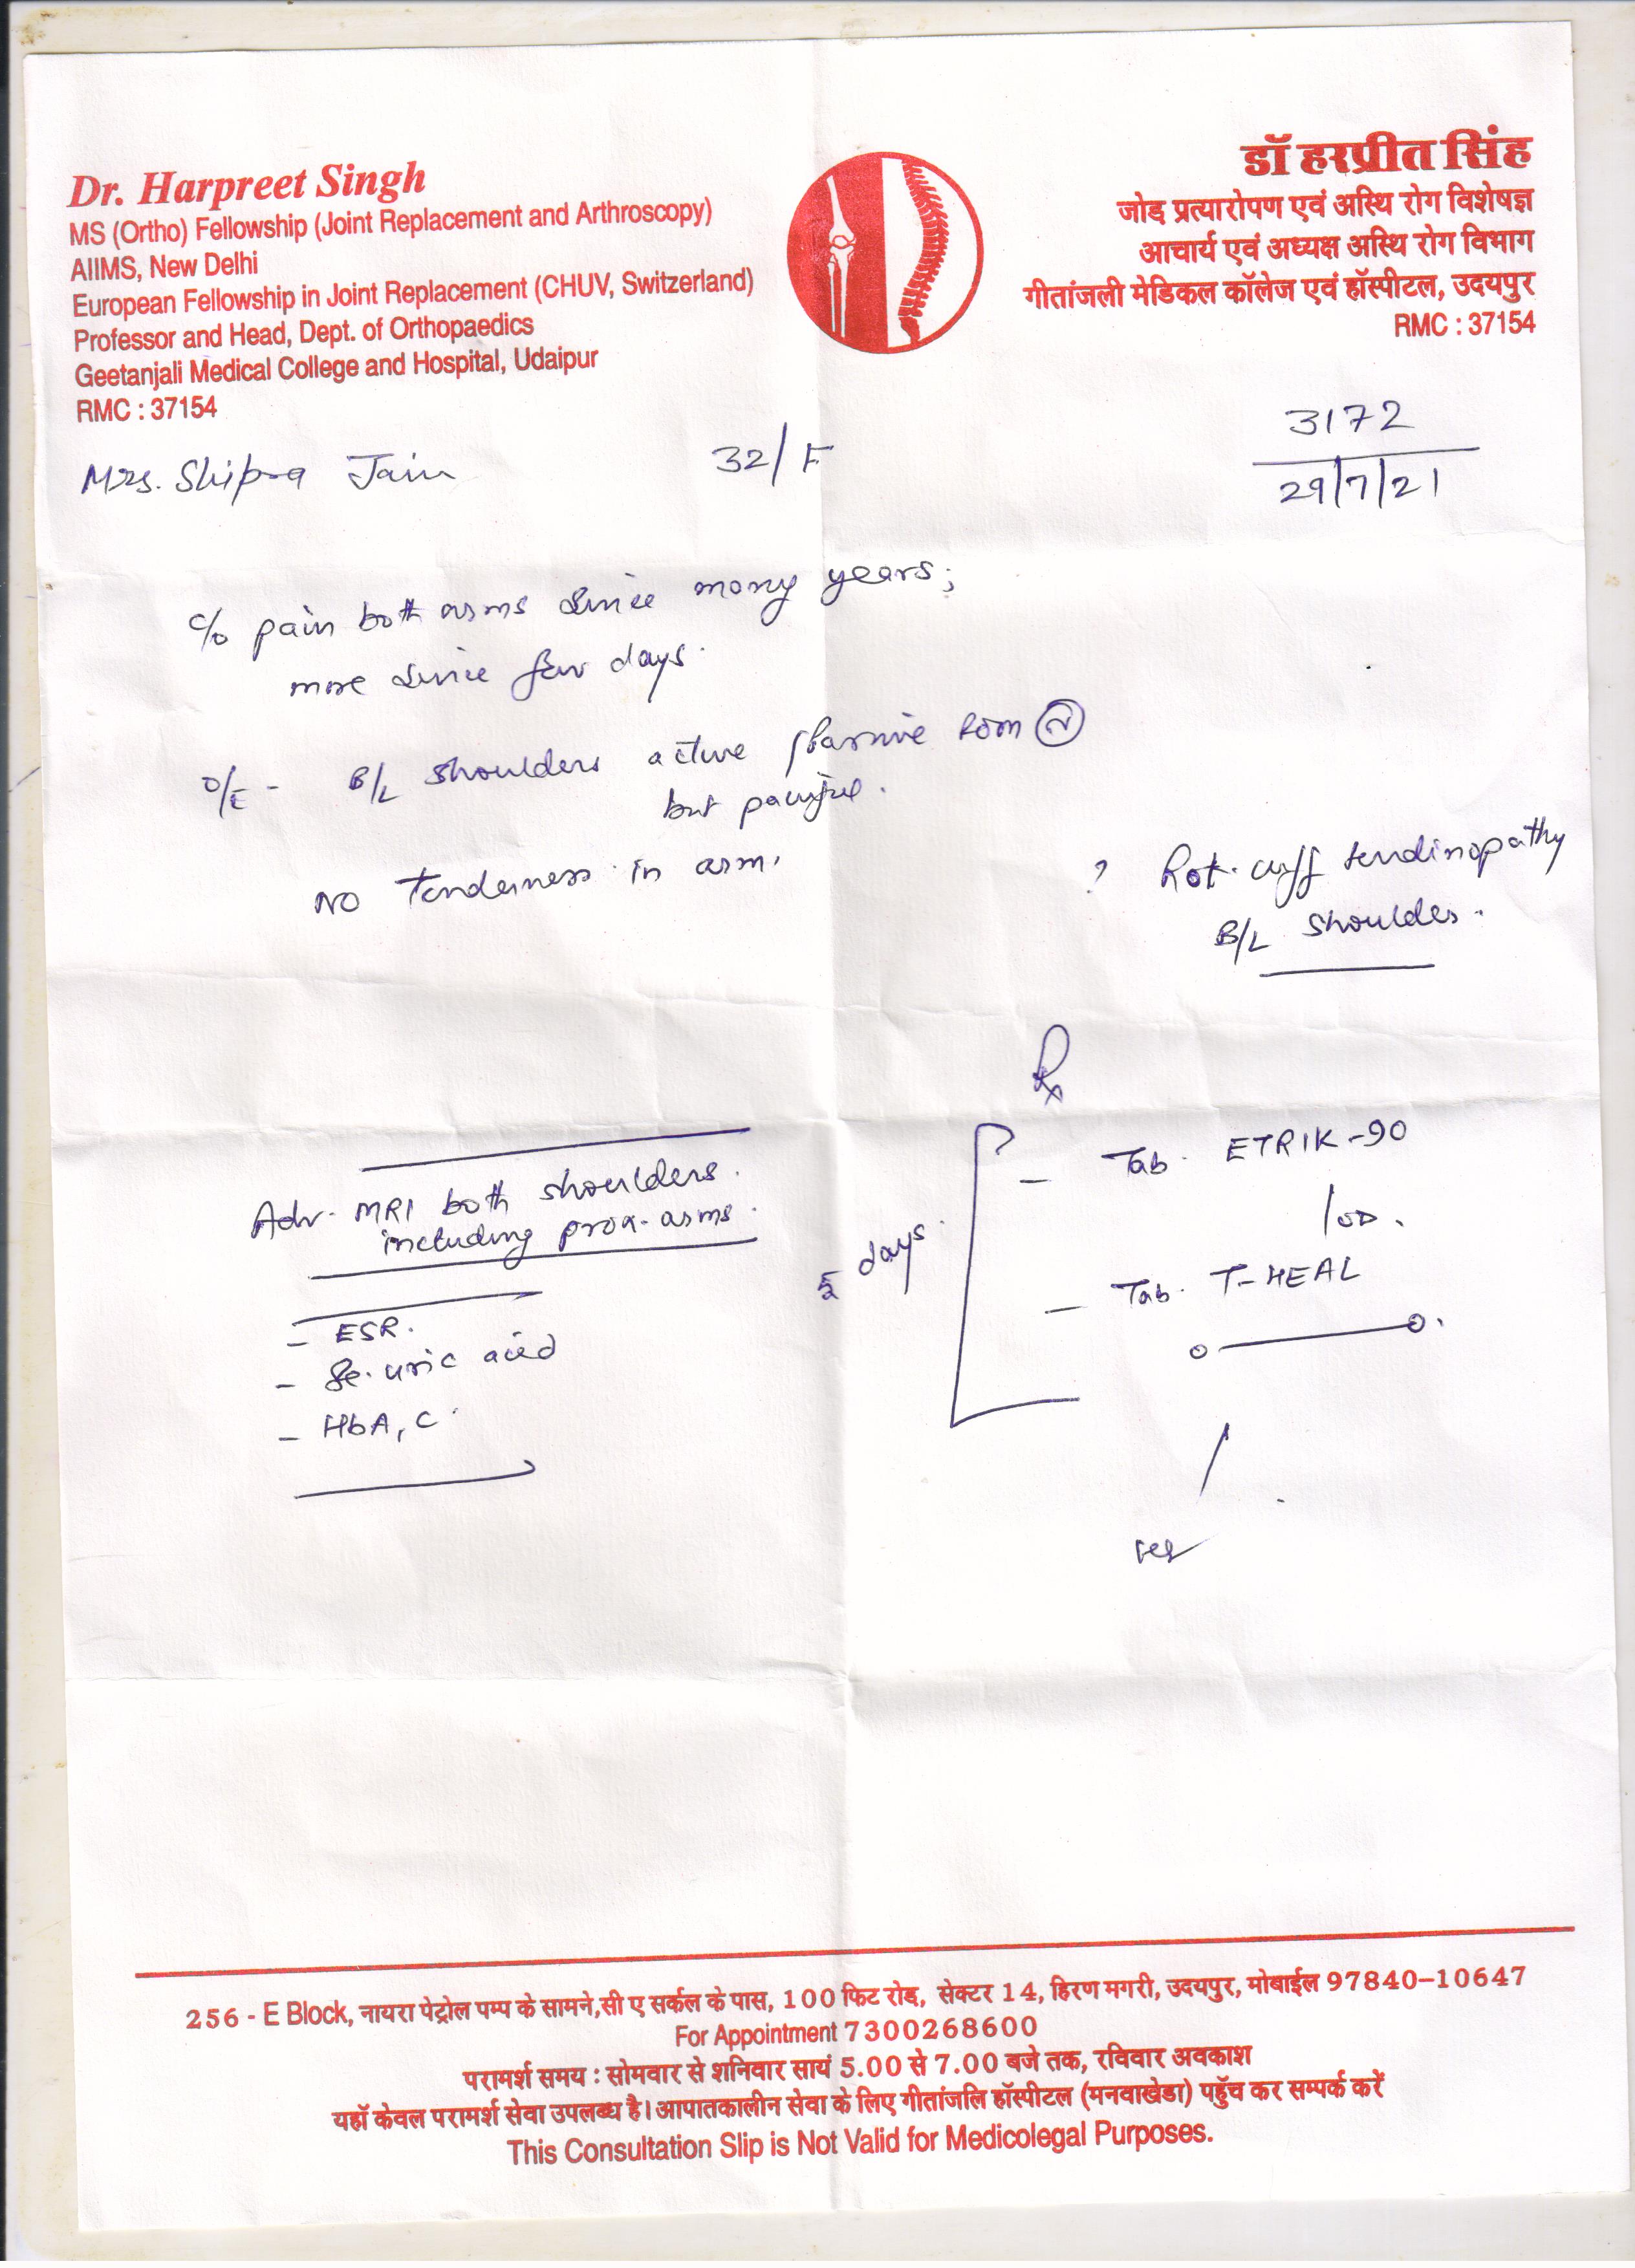 Dr. Harpreet Singh
MS (Ortho) Fellowship (Joint Replacement and Arthroscopy)
AIIMS, New Delhi
European Fellowship in Joint Replacement (CHUV, Switzerland)
Professor and Head, Dept. of Orthopaedics
Geetanjali Medical College and Hospital, Udaipur
RMC : 37154
डॉ हरप्रीत सिंह
जोड़ प्रत्यारोपण एवं अस्थि रोग विशेषज्ञ
आचार्य एवं अध्यक्ष अस्थि रोग विभाग
गीतांजली मेडिकल कॉलेज एवं हॉस्पीटल, उदयपुर
RMC : 37154
3172
29/7/21
Mrs. Shipra Jain 32/F
c/o pain both arms since many years;
more since few days.
O/E - B/L shoulders active / passive ROM (N)
but painful.
NO Tenderness in arm.
? Rot. cuff tendinopathy
B/L shoulder.
Rx
Adv. MRI both shoulders.
including prox. arms.
- ESR.
- Se. uric acid
- HbA1C
5 days
- Tab. ETRIK-90
1 OD.
- Tab. T-HEAL
o — o.
256 - E Block, नायरा पेट्रोल पम्प के सामने,सी ए सर्कल के पास, 100 फिट रोड, सेक्टर 14, हिरण मगरी, उदयपुर, मोबाईल 97840-10647
For Appointment 7300268600
परामर्श समय : सोमवार से शनिवार सायं 5.00 से 7.00 बजे तक, रविवार अवकाश
यहाँ केवल परामर्श सेवा उपलब्ध है। आपातकालीन सेवा के लिए गीतांजलि हॉस्पीटल (मनवाखेडा) पहुँच कर सम्पर्क करें
This Consultation Slip is Not Valid for Medicolegal Purposes.